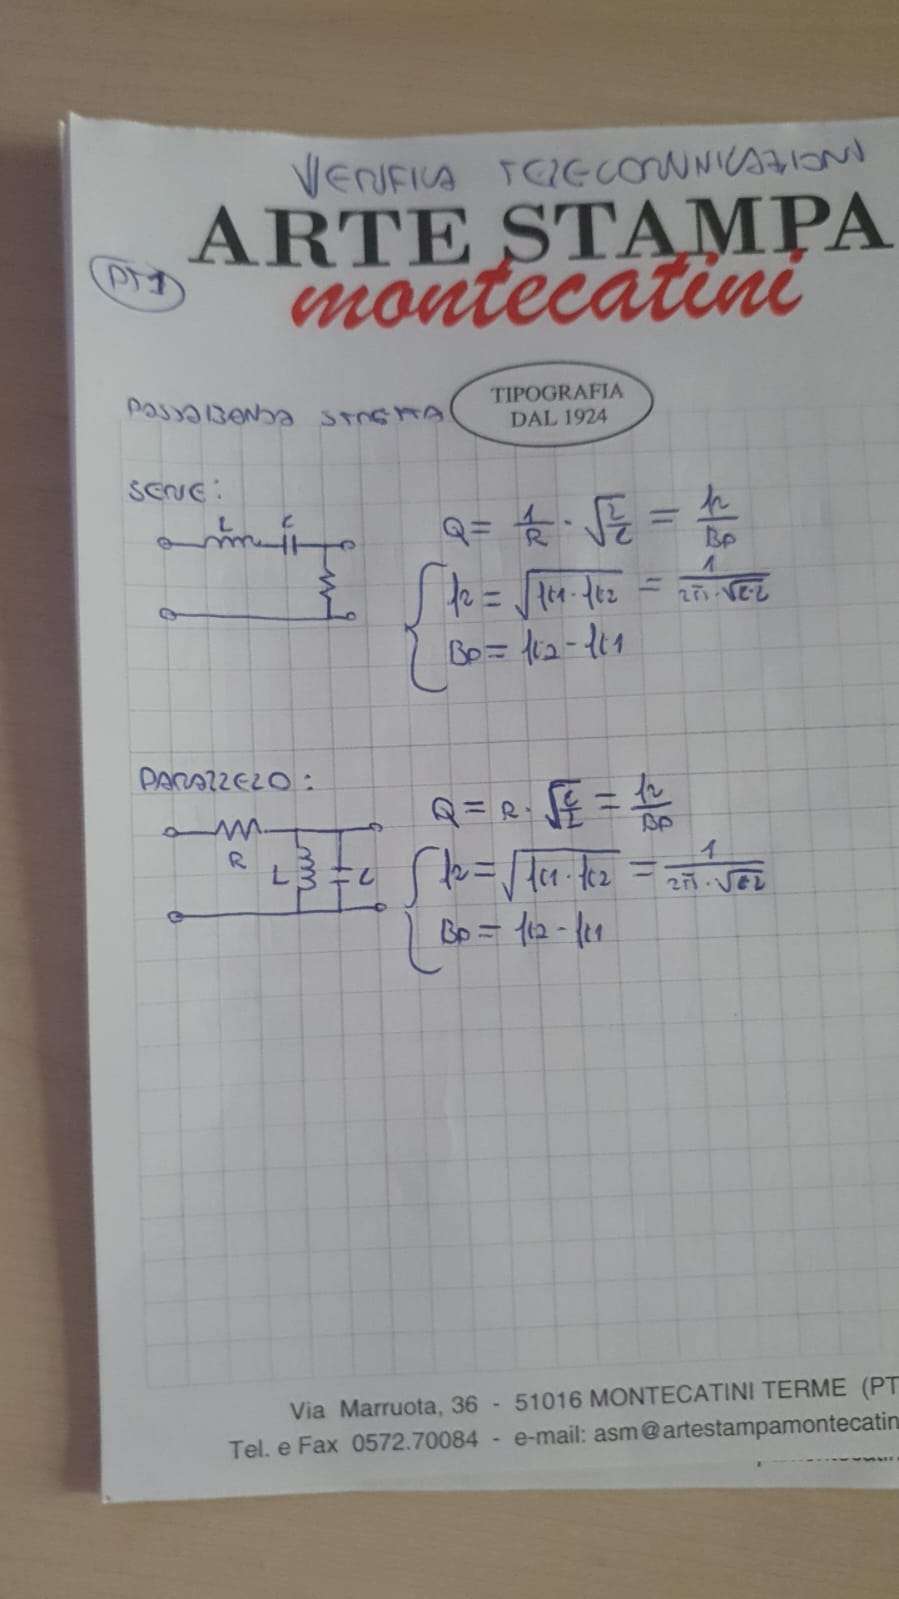 VERIFICA TELECOMUNICAZIONI
ARTE STAMPA
montecatini
PT1
TIPOGRAFIA
DAL 1924
PASSABANDA STRETTA
SERIE:
L C
Q = 1/R · √(L/C) = fr/Bp
fr = √(fc1 · fc2) = 1/(2π · √(C·L))
Bp = fc2 - fc1
PARALLELO:
R L C
Q = R · √(C/L) = fr/Bp
fr = √(fc1 · fc2) = 1/(2π · √(CL))
Bp = fc2 - fc1
Via Marruota, 36 - 51016 MONTECATINI TERME (PT
Tel. e Fax 0572.70084 - e-mail: asm@artestampamontecatin